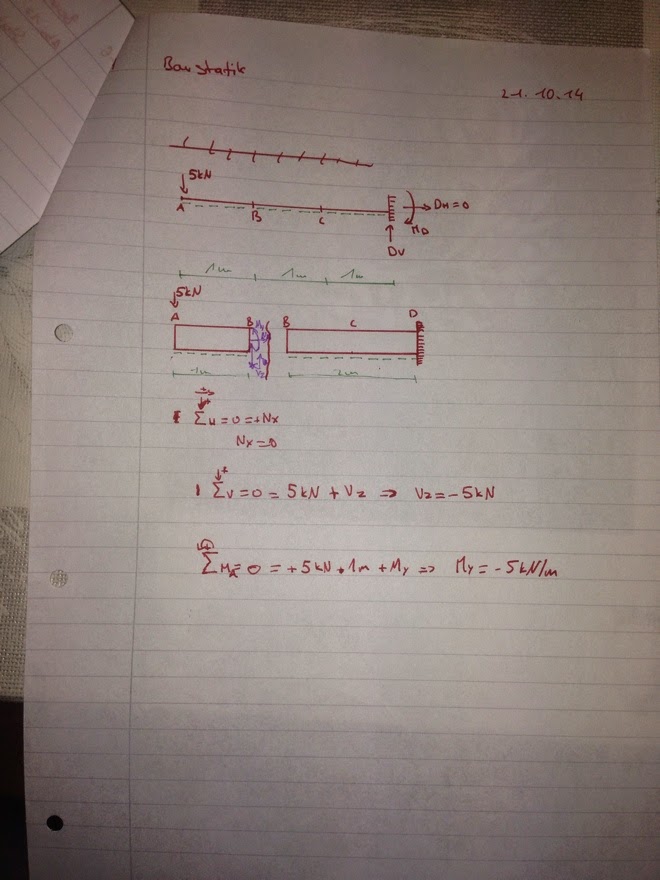 Baustatik
21.10.14
5kN
A B C DH=0
MD
DV
1m 1m 1m
5kN
A B B C D
1m 2m
ΣH=0=+Nx
Nx=0
ΣV=0=5kN+Vz => Vz=-5kN
ΣMA=0=+5kN·1m+My => My=-5kN/m